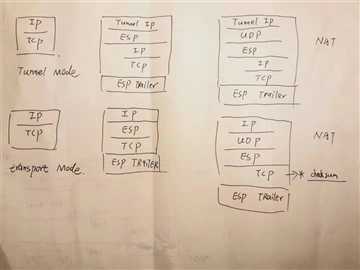 IP
TCP
Tunnel Mode
Tunnel Ip
ESP
IP
TCP
ESP Trailer
Tunnel Ip
UDP
ESP
IP
TCP
ESP Trailer
NAT
IP
TCP
transport Mode
IP
ESP
TCP
ESP TRAILER
IP
UDP
ESP
TCP → * checksum
ESP Trailer
NAT